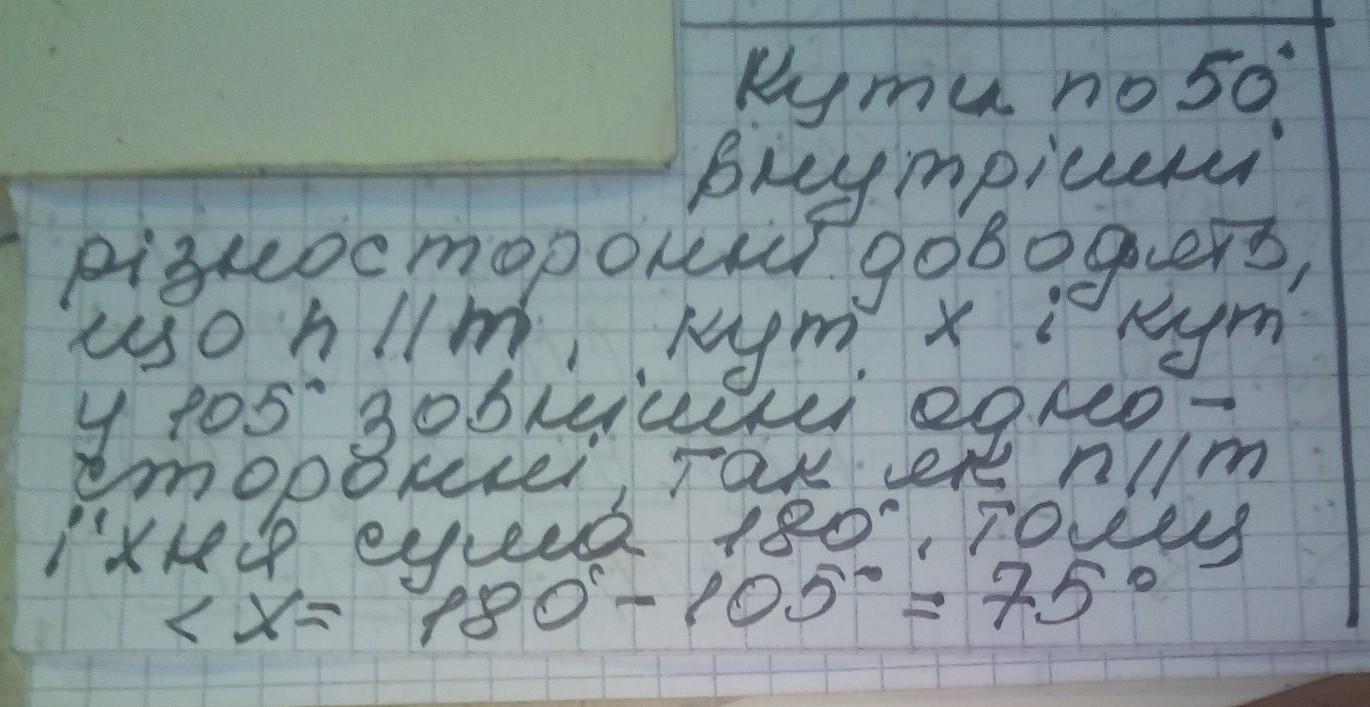 Кути по 50°
внутрішні
різносторонні доводять,
що n || m, кут х і кут
у 105° зовнішні одно-
сторонні, так як n || m
їхня сума 180°, тому
< х = 180° - 105° = 75°